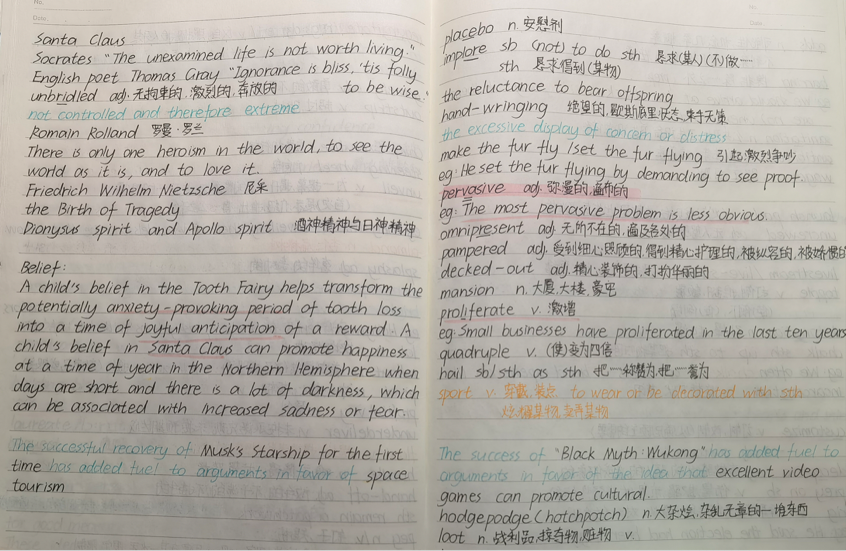 No.
Date.
Santa Claus
Socrates "The unexamined life is not worth living."
English poet Thomas Gray "Ignorance is bliss, 'tis folly
unbridled adj. 无拘束的, 激烈的, 奔放的 to be wise."
not controlled and therefore extreme
Romain Rolland 罗曼·罗兰
There is only one heroism in the world, to see the
world as it is, and to love it.
Friedrich Wilhelm Nietzsche 尼采
the Birth of Tragedy
Dionysus spirit and Apollo spirit 酒神精神与日神精神
Belief:
A child's belief in the Tooth Fairy helps transform the
potentially anxiety-provoking period of tooth loss
into a time of joyful anticipation of a reward. A
child's belief in Santa Claus can promote happiness
at a time of year in the Northern Hemisphere when
days are short and there is a lot of darkness, which
can be associated with increased sadness or fear.
The successful recovery of Musk's Starship for the first
time has added fuel to arguments in favor of space
tourism
placebo n. 安慰剂
implore sb (not) to do sth 恳求(某人)(不)做……
sth 恳求得到(某物)
the reluctance to bear offspring
hand-wringing 绝望的, 歇斯底里状态, 束手无策
the excessive display of concern or distress
make the fur fly /set the fur flying 引起激烈争吵
eg: He set the fur flying by demanding to see proof.
pervasive adj. 弥漫的, 遍布的
eg: The most pervasive problem is less obvious.
omnipresent adj. 无所不在的, 遍及各处的
pampered adj. 受到细心照顾的, 得到精心护理的, 被纵容的, 被娇惯的
decked-out adj. 精心装饰的, 打扮华丽的
mansion n. 大厦, 大楼, 豪宅
proliferate v. 激增
eg: Small businesses have proliferated in the last ten years
quadruple v. (使)变为四倍
hail sb/sth as sth 把…称赞为, 把…誉为
sport v. 穿戴, 装点 to wear or be decorated with sth
The success of "Black Myth: Wukong" has added fuel to
arguments in favor of the idea that excellent video
games can promote cultural.
hodgepodge (hotchpotch) n. 大杂烩, 杂乱无章的一堆东西
loot n. 战利品, 掠夺物, 赃物 v.